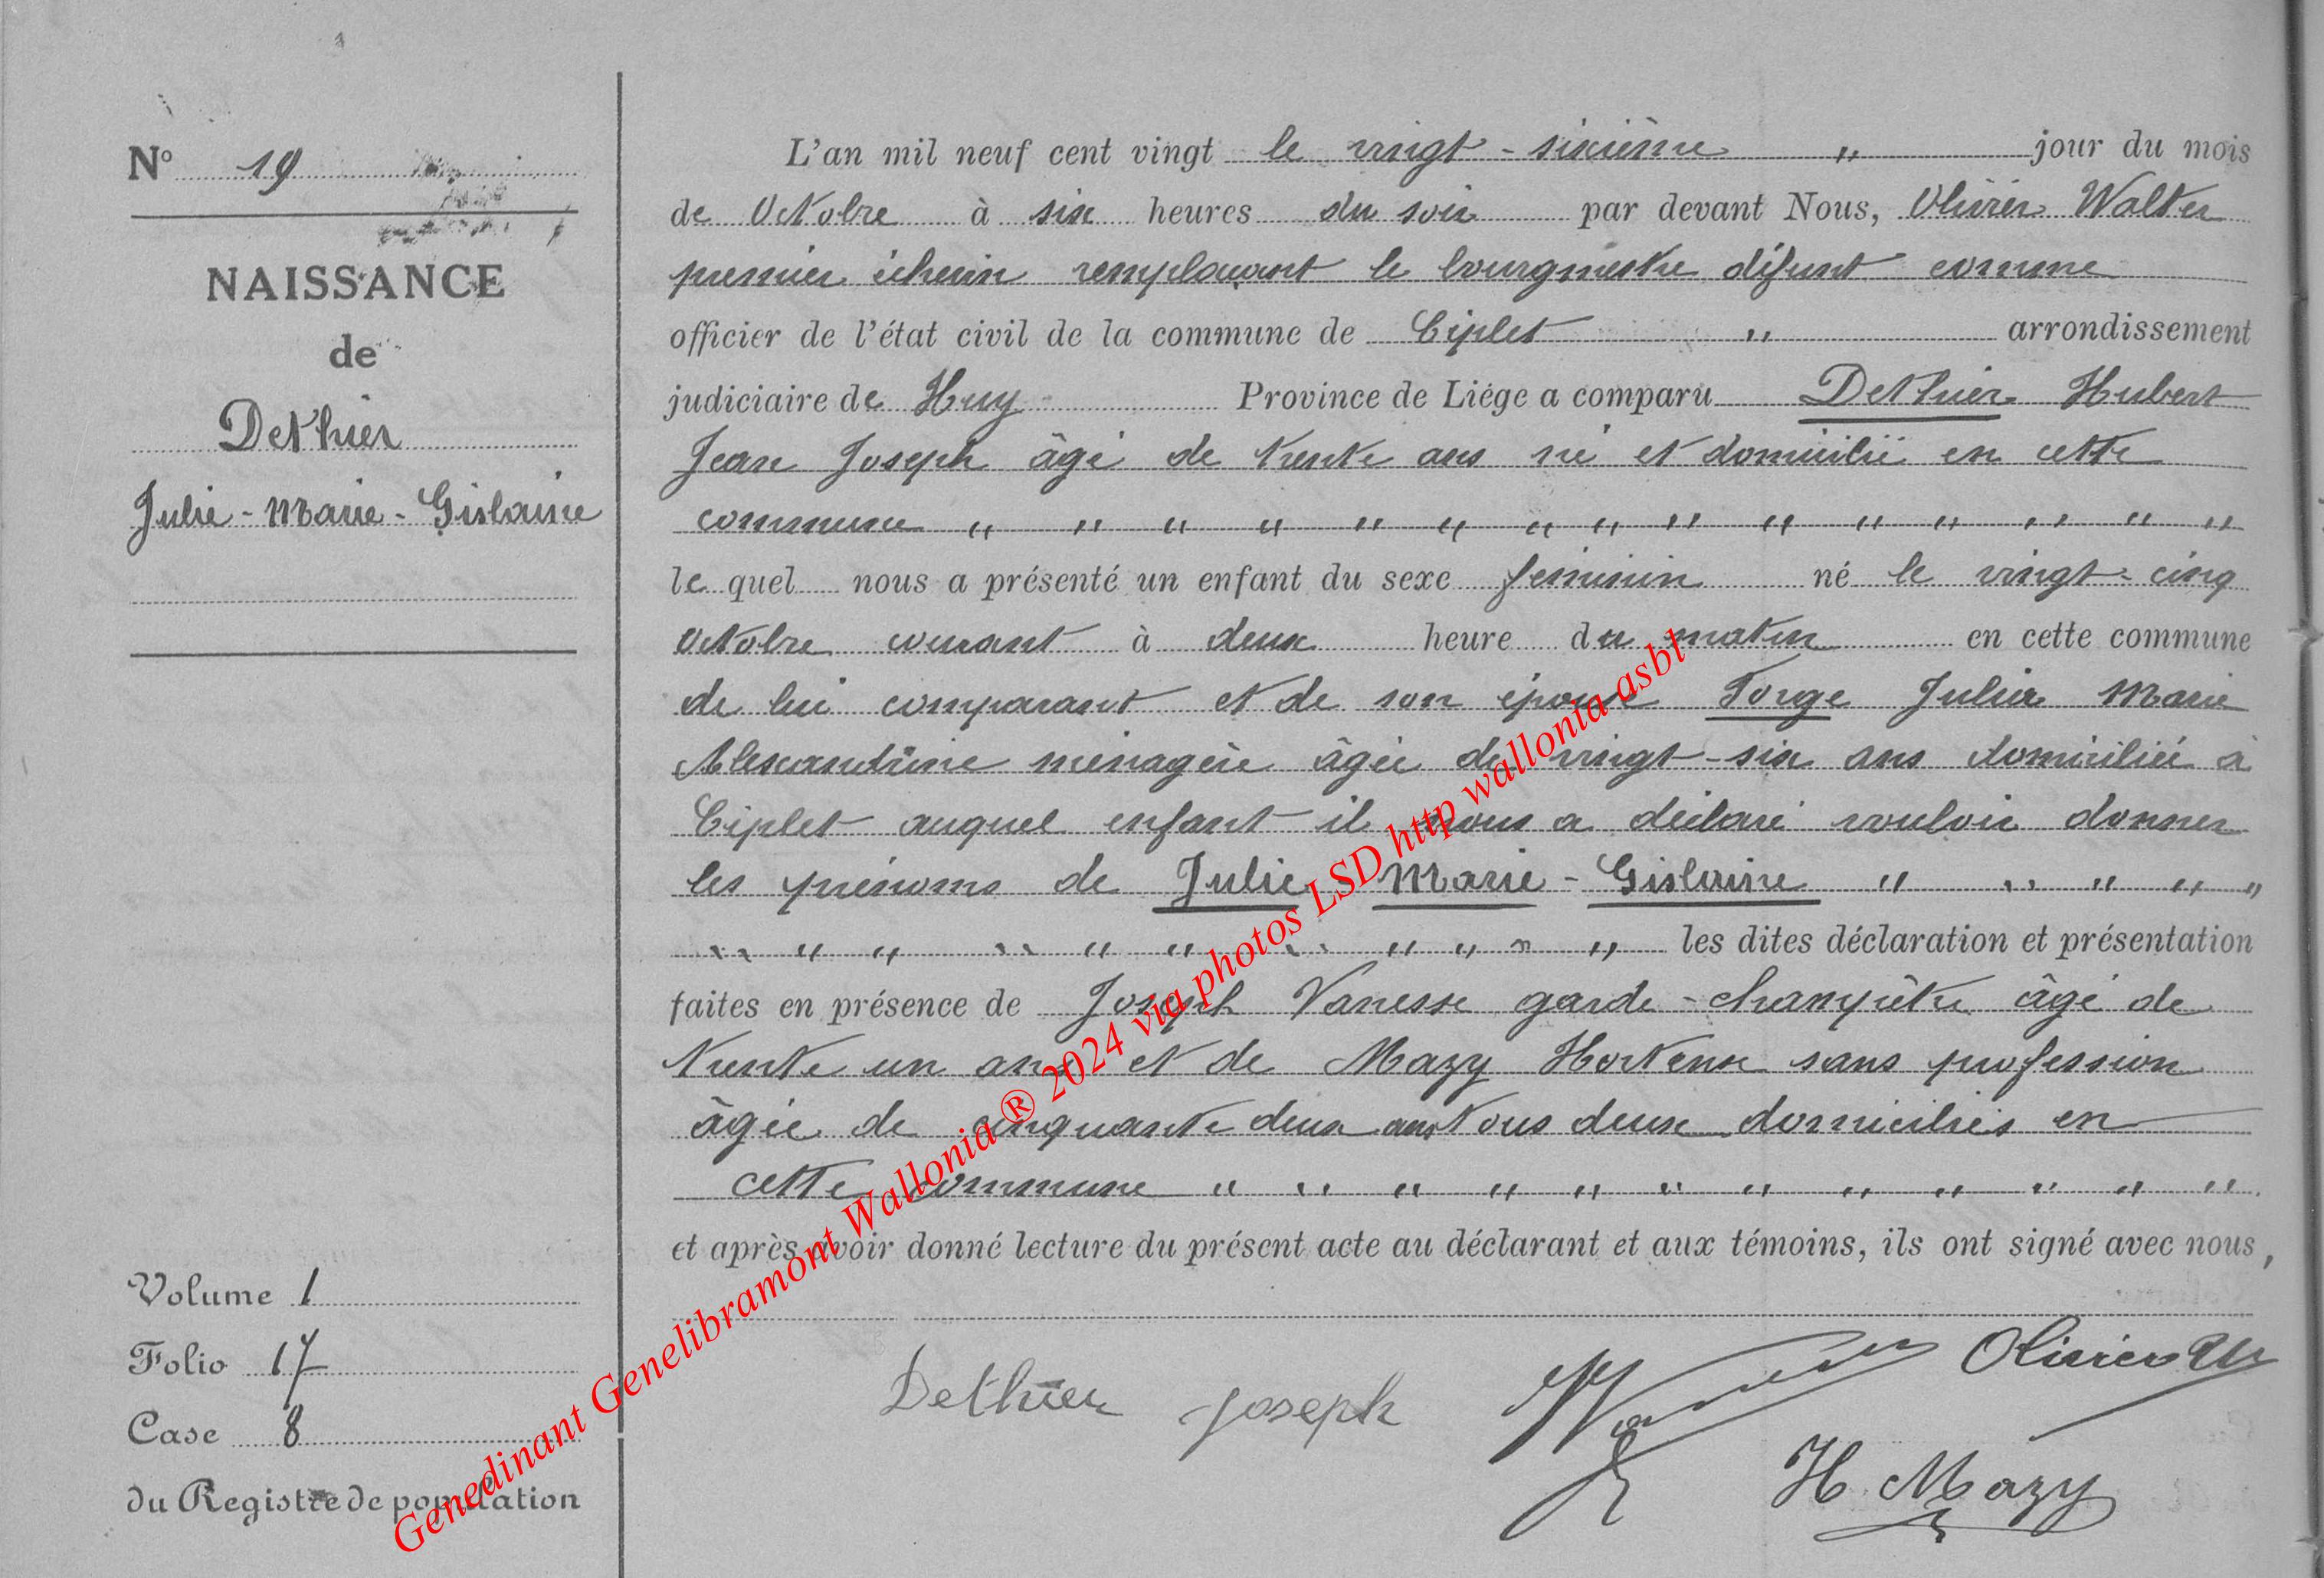 N° 19
NAISSANCE
de
Dethier
Julie - Marie - Gislaine
Volume 1
Folio 17
Case 8
du Registre de population
L'an mil neuf cent vingt le vingt - sixième " jour du mois
de Octobre à six heures du soir par devant Nous, Olivier Walter
premier échevin remplaçant le bourgmestre défunt comme
officier de l'état civil de la commune de Ciplet " arrondissement
judiciaire de Huy Province de Liége a comparu Dethier Hubert
Jean Joseph âgé de trente ans né et domicilié en cette
commune " " " " " " " " " " " " " " "
le quel nous a présenté un enfant du sexe féminin né le vingt-cinq
octobre courant à deux heure du matin en cette commune
de lui comparant et de son épouse Forge Julia Marie
Alexandrine ménagère âgée de vingt-six ans domiciliée à
Ciplet auquel enfant il nous a déclaré vouloir donner
les prénoms de Julie - Marie - Gislaine " " " " "
" " " " " " " " " " " les dites déclaration et présentation
faites en présence de Joseph Vanesse garde-champêtre âgé de
trente un ans et de Mazy Hortense sans profession
âgée de cinquante deux ans tous deux domiciliés en
cette commune " " " " " " " " " " " "
et après avoir donné lecture du présent acte au déclarant et aux témoins, ils ont signé avec nous,
Dethier Joseph Olivier W
H. Mazy
Genedinant Genelibramont Wallonia ® 2024 via photos LSD http wallonia asbl